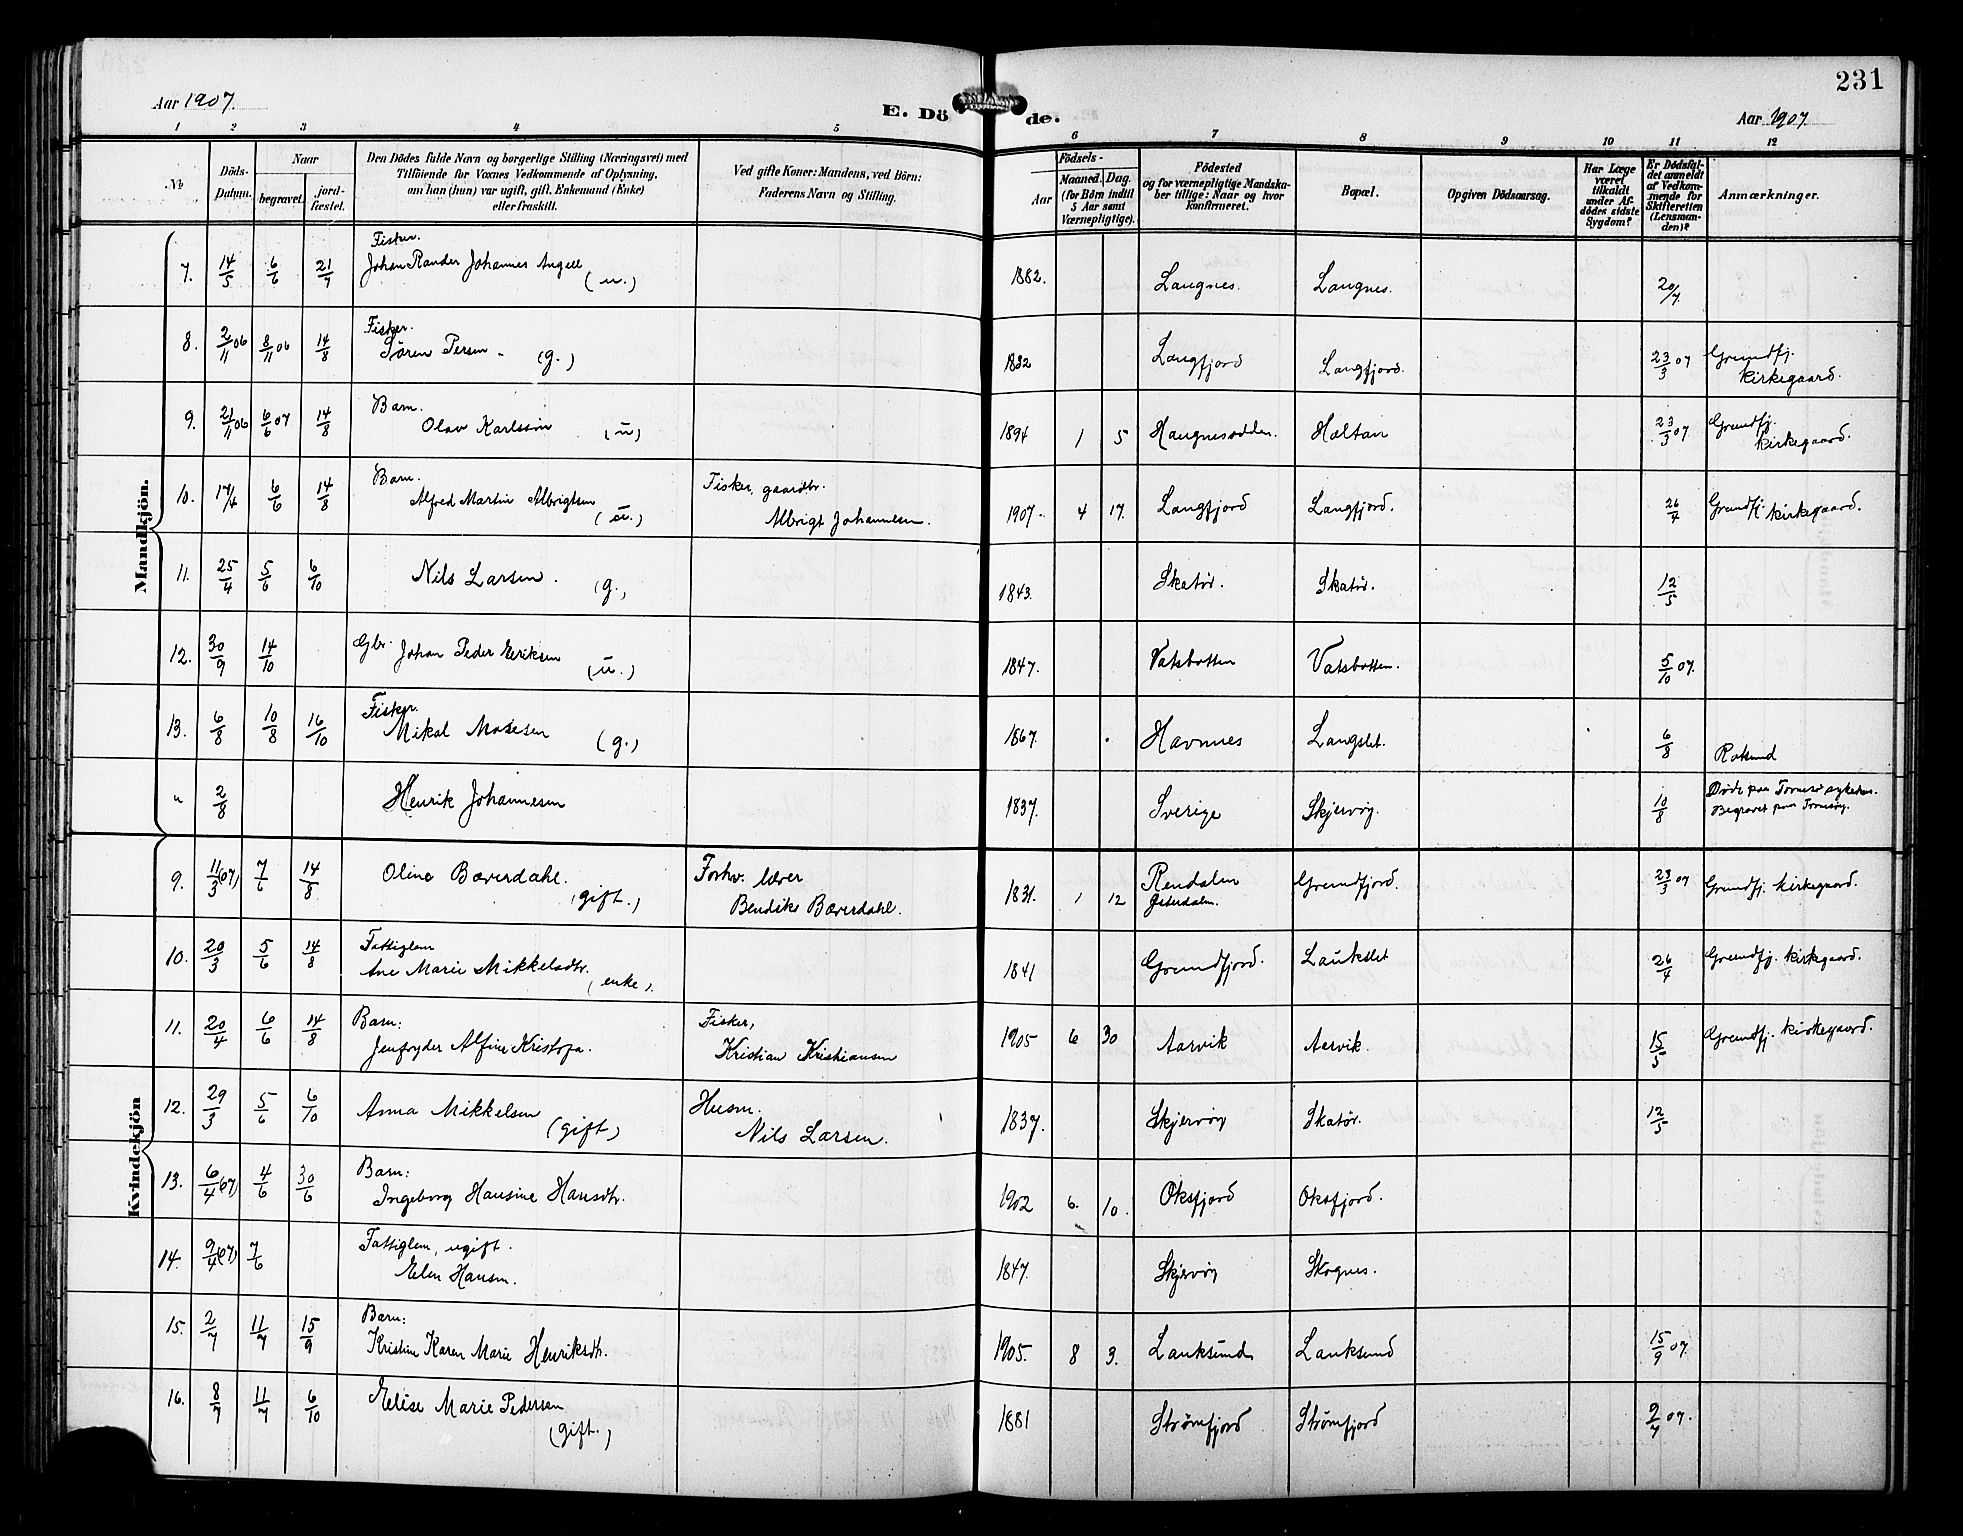 231
Aar 1907.
E. Dö de.
Aar 1907
1 2 3 4 5 6 7 8 9 10 11 12
No
Döds-Datum.
Naar
begravet.
jord-fæstet.
Den Dödes fulde Navn og borgerlige Stilling (Næringsvei) med
Tilföiende for Voxnes Vedkommende af Oplysning,
om han (hun) var ugift, gift, Enkemand (Enke)
eller fraskilt.
Ved gifte Koner: Mandens, ved Börn:
Faderens Navn og Stilling.
Födsels-
Aar
Maaned. Dag.
(for Börn indtil
5 Aar samt
Værnepligtige).
Födested
og for værnepligtige Mandska-
ber tillige: Naar og hvor
konfirmeret.
Bopæl.
Opgiven Dödsaarsag.
Har Læge
været
tilkaldt
under Af-
dödes sidste
Sygdom?
Er Dödsfal-
det anmeldt
af Vedkom-
mende for
Skifteretten
(Lensman-
den)?
Anmærkninger.
Mandkjön.
7. 14/5 6/6 21/7 Fisker.
Johan Rander Johannes Angell (u.) 1882. Langnes. Langnes. 20/7.
8. 2/11 06 8/11 06 14/8 Fisker.
Sören Persen. (g.) 1882 Langfjord Langfjord. 23/3 07 Grundfj. kirkegaard.
9. 21/11 06 6/6 07 14/8 Barn.
Olav Karlssön (u) 1894 1 5 Haugnesodden. Holtan 23/3 07 Grundfj. kirkegaard.
10. 17/4 6/6 14/8 Barn.
Alfred Martin Albrigtsen (u.) Fisker, gaardbr.
Albrigt Johannesen. 1907. 4 17. Langfjord Langfjord. 26/4 Grundfj. kirkegaard.
11. 25/4 5/6 6/10 Nils Larsen. (g.) 1843. Skatör. Skatör. 12/5
12. 30/9 14/10 Gbr. Johan Peder Eeriksen (u.) 1847. Vatsbotten Vatsbotten. 5/10 07.
13. 6/8 10/8 16/10 Fisker.
Mikal Mosesen (g.) 1867. Havnnes Langslet. 6/8 Rotsund
" 2/8 Henrik Johannesen 1837. Sverige Skjervöy. 10/8 Døde paa Tromsø sykehus.
Begravet paa Tromsøy.
Kvindekjön
9. 11/3 (07) 7/6 14/8 Oline Bæverdahl. (gift.) Forhv. lærer
Bendiks Bæverdahl. 1831. 1 12 Rendalen
Østerdalen. Grundfjord. 23/3 07 Grundfj. kirkegaard.
10. 20/3 5/6 14/8 Fattiglem
Ane Marie Mikkelsdtr. (enke). 1841 Grundfjord. Laukslet 26/4 Grundfj. kirkegaard.
11. 20/4 6/6 14/8 Barn:
Jenfryder Alfine Kristofa. Fisker,
Kristian Kristiansen 1905 6 30 Aarvik Aarvik. 15/5 Grundfj. kirkegaard.
12. 29/3 5/6 6/10 Anna Mikkelsen (gift) Husm.
Nils Larsen. 1837. Skjervöy Skatör. 12/5
13. 6/4 (07) 4/6 30/6 Barn:
Ingeborg Hansine Hansdtr. 1902 6. 10. Oksfjord Oksfjord.
14. 9/4 (07) 7/6 Fattiglem, ugift.
Elen Hansen. 1847. Skjervöy Skognes.
15. 2/7 11/7 15/9 Barn:
Kristine Karen Marie Henriksdtr. 1905. 8 3. Lauksund Lauksund 15/9 07.
16. 8/7 11/7 6/10 Elise Marie Pedersen (gift.) 1881 Strömfjord Strömfjord 9/7 07.